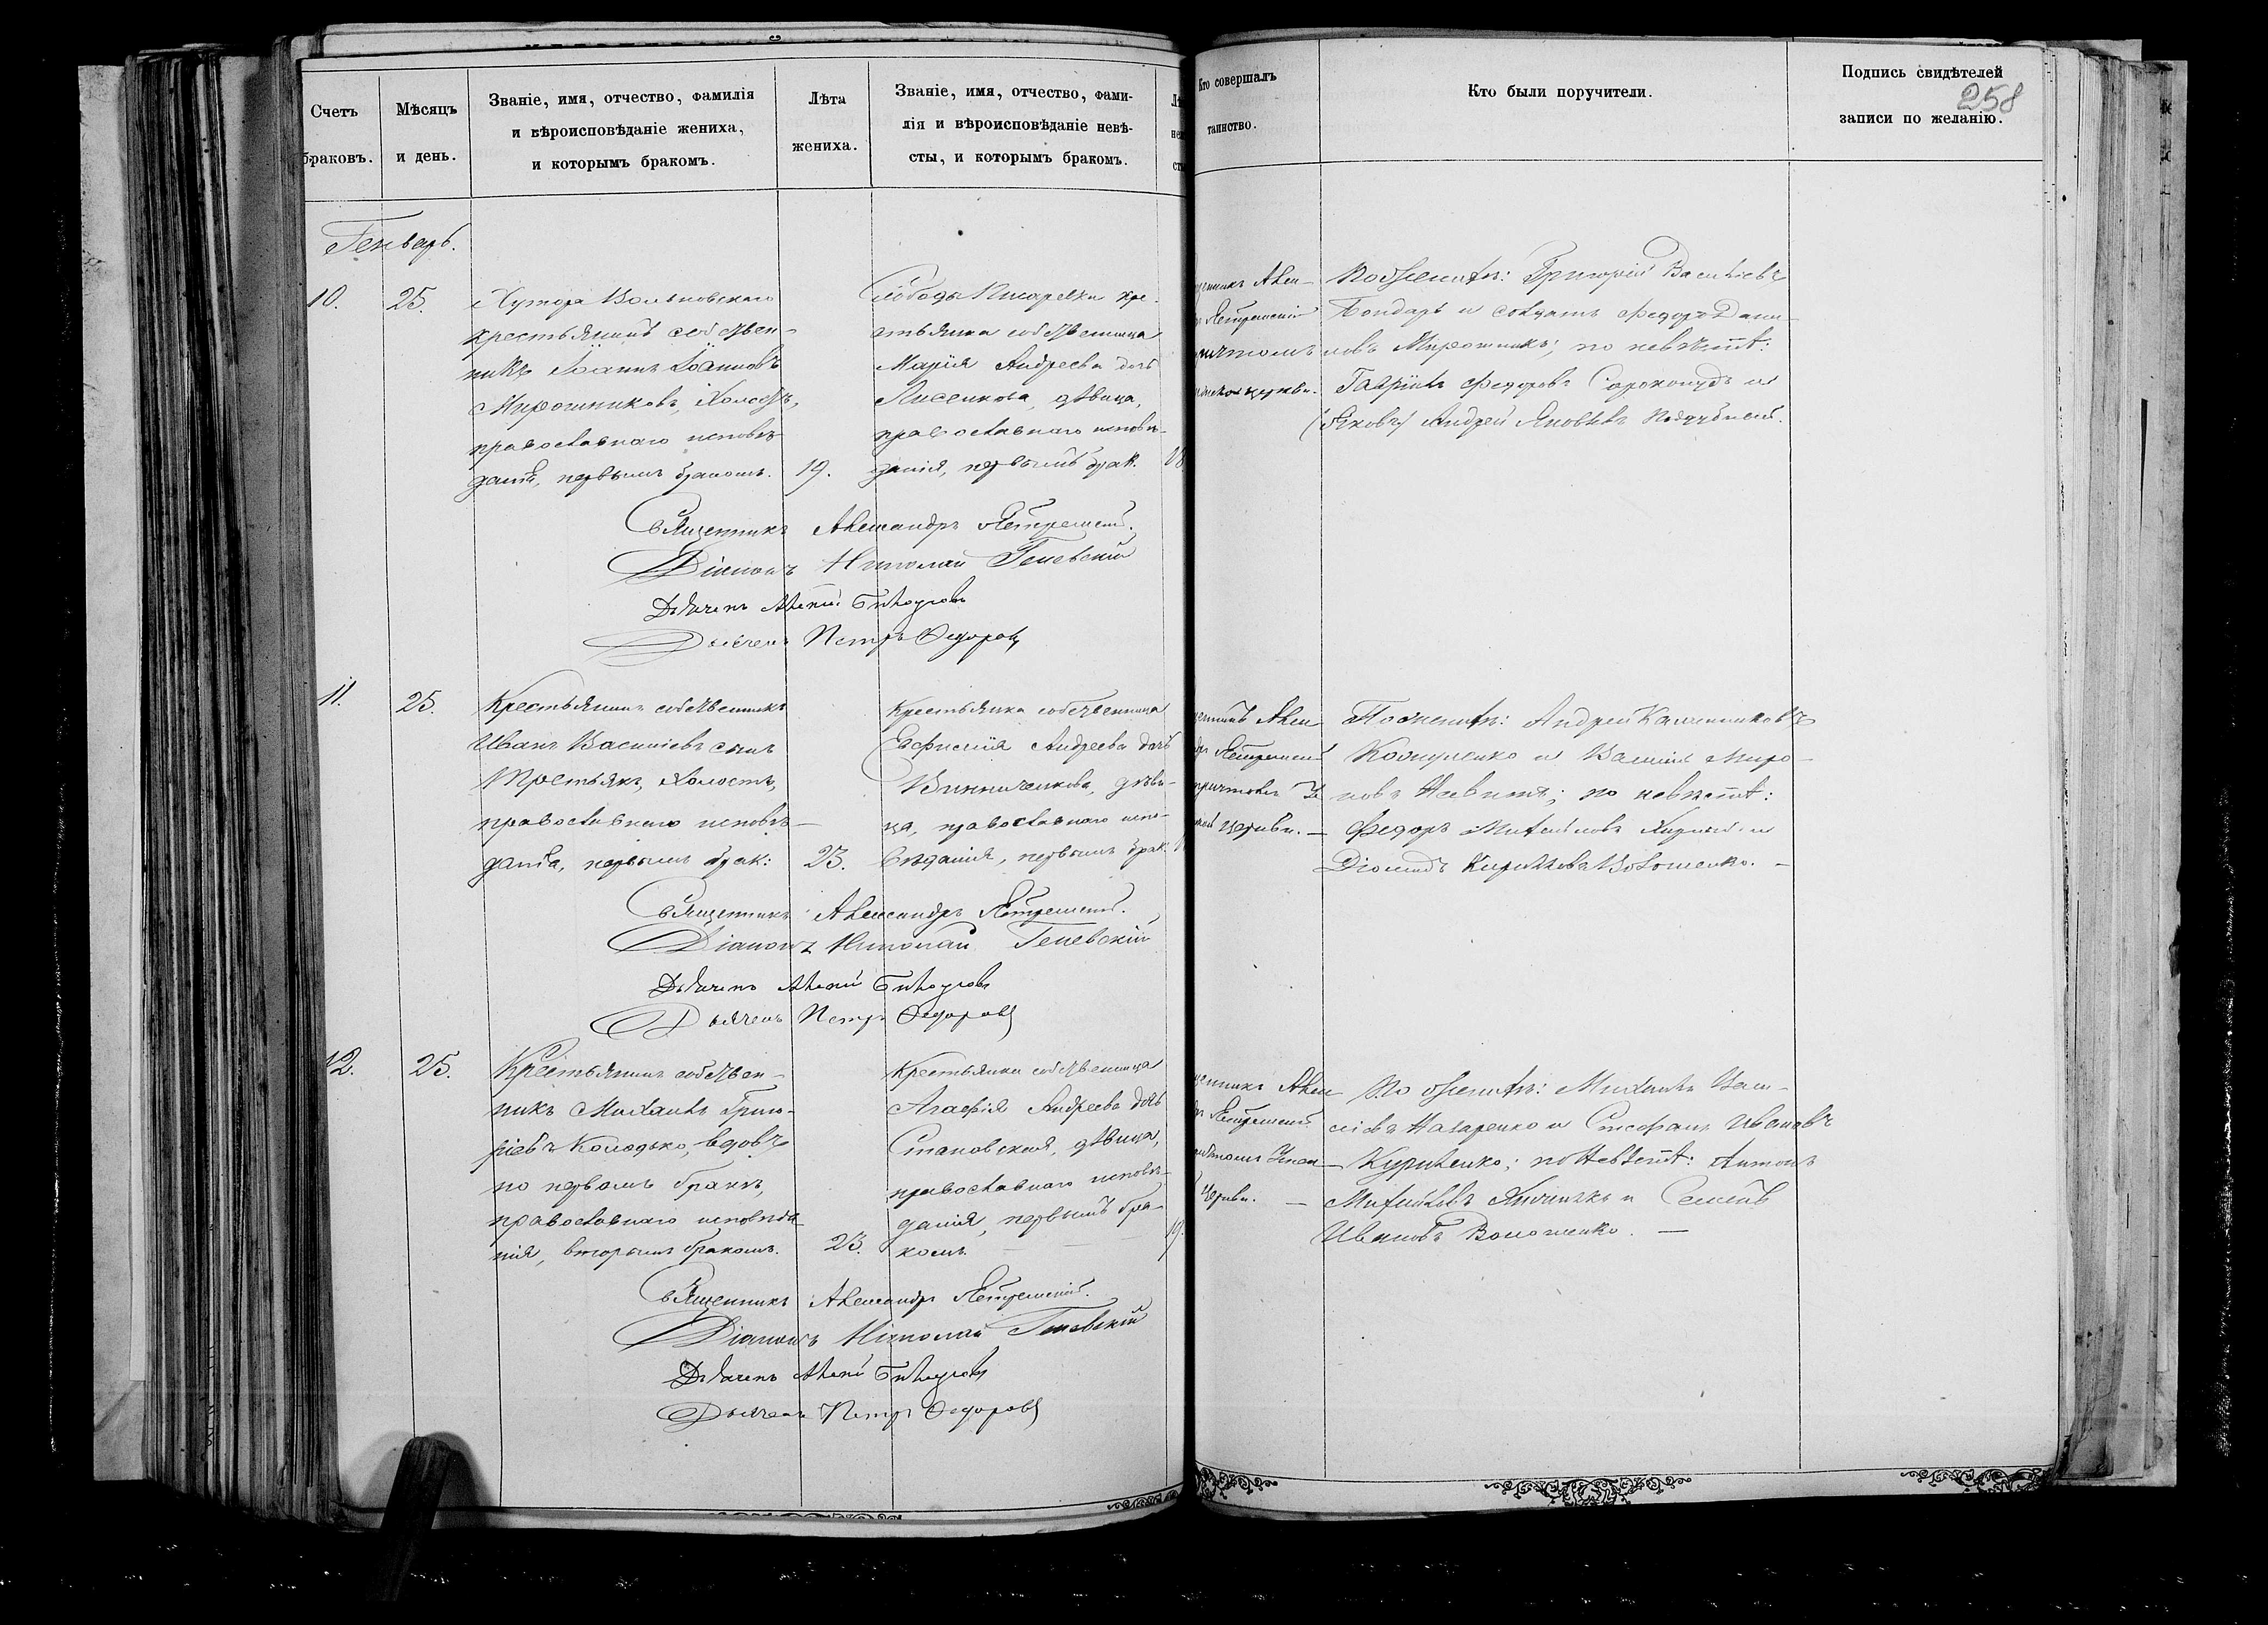 Счетъ
браковъ.
Мѣсяцъ
и день.
Званіе, имя, отчество, фамилія
и вѣроисповѣданіе жениха,
и которымъ бракомъ.
Лѣта
жениха.
Званіе, имя, отчество, фами-
лія и вѣроисповѣданіе невѣ-
сты, и которымъ бракомъ.
Кто совершалъ
таинство.
Кто были поручители.
Подпись свидѣтелей
записи по желанію.
258
Генварь.
10.
25.
Хутора
крестьянинъ собствен-
никъ Іоаннъ Іоанновъ
Мирошниковъ, холостъ,
православнаго исповѣ-
данія, первымъ бракомъ.
19.
Слободы Писаревки кре-
стьянка собственница
Марія Андреева дочь
Лисенкова, дѣвица,
православнаго исповѣ-
данія, первымъ брак.
По женихѣ: Григорій Васильевъ
Бондарь и солдатъ Федоръ Дани-
ловъ Мирошникъ; по невѣстѣ:
Гавріилъ Федоровъ и
(Яковъ) Андрей Яковлевъ
церкви.
Священникъ Александръ
Діаконъ Николай Геневскій
Дьячекъ
Дьячекъ Петръ Федоровъ
11.
25.
Крестьянинъ собственникъ
Иванъ Васильевъ сынъ
Третьякъ, холостъ,
православнаго исповѣ-
данія, первымъ брак:
23.
Крестьянка собственница
Евфимія Андреева дочь
Винниченкова, дѣви-
ца, православнаго испо-
вѣданія, первымъ брак.
По женихѣ: Андрей Калинниковъ
и Василій Миро-
новъ по невѣстѣ:
Федоръ Михайловъ и
Діомидъ Кирилловъ Волошенко. —
церкви. —
Священникъ Александръ
Діаконъ Николай Геневскій
Дьячекъ
Дьячекъ Петръ Федоровъ
12.
25.
Крестьянинъ собствен-
никъ Михаилъ Григо-
ріевъ Колодько, вдовъ
по первомъ бракѣ,
православнаго исповѣда-
нія, вторымъ бракомъ.
23.
Крестьянка собственница
Агафія Андреева дочь
Становская, дѣвица,
православнаго исповѣ-
данія, первымъ бра-
комъ.
19.
По женихѣ: Михаилъ Васи-
ліевъ Назаренко и Стефанъ Ивановъ
Куриленко; по невѣстѣ: Антонъ
Михайловъ и Семенъ
Ивановъ Волошенко. —
церкви. —
Священникъ Александръ
Діаконъ Николай Геневскій
Дьячекъ
Дьячекъ Петръ Федоровъ